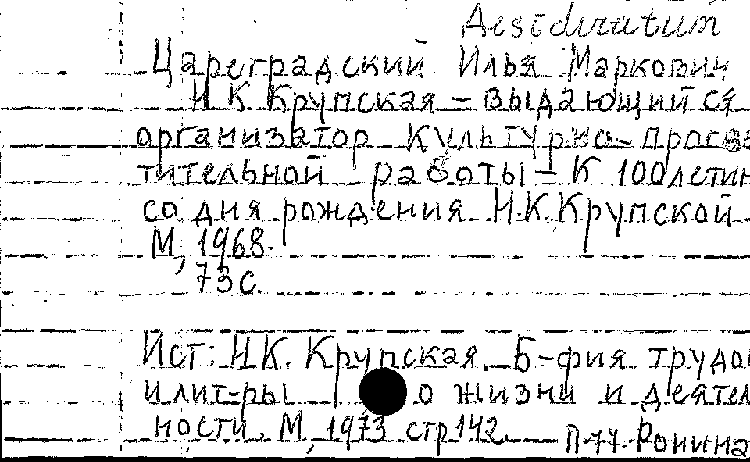 Desideratum
Цареградский Илья Маркович
Н.К. Крупская – выдающийся
организатор культурно-просве
тительной работы – К 100летию
со дня рождения Н.К. Крупской
М, 1968.
73 с.
Ист: Н.К. Крупская. Б-фия трудов
и лит-ры о жизни и деятель
ности. М, 1973 стр 142.
П-77. Ронина